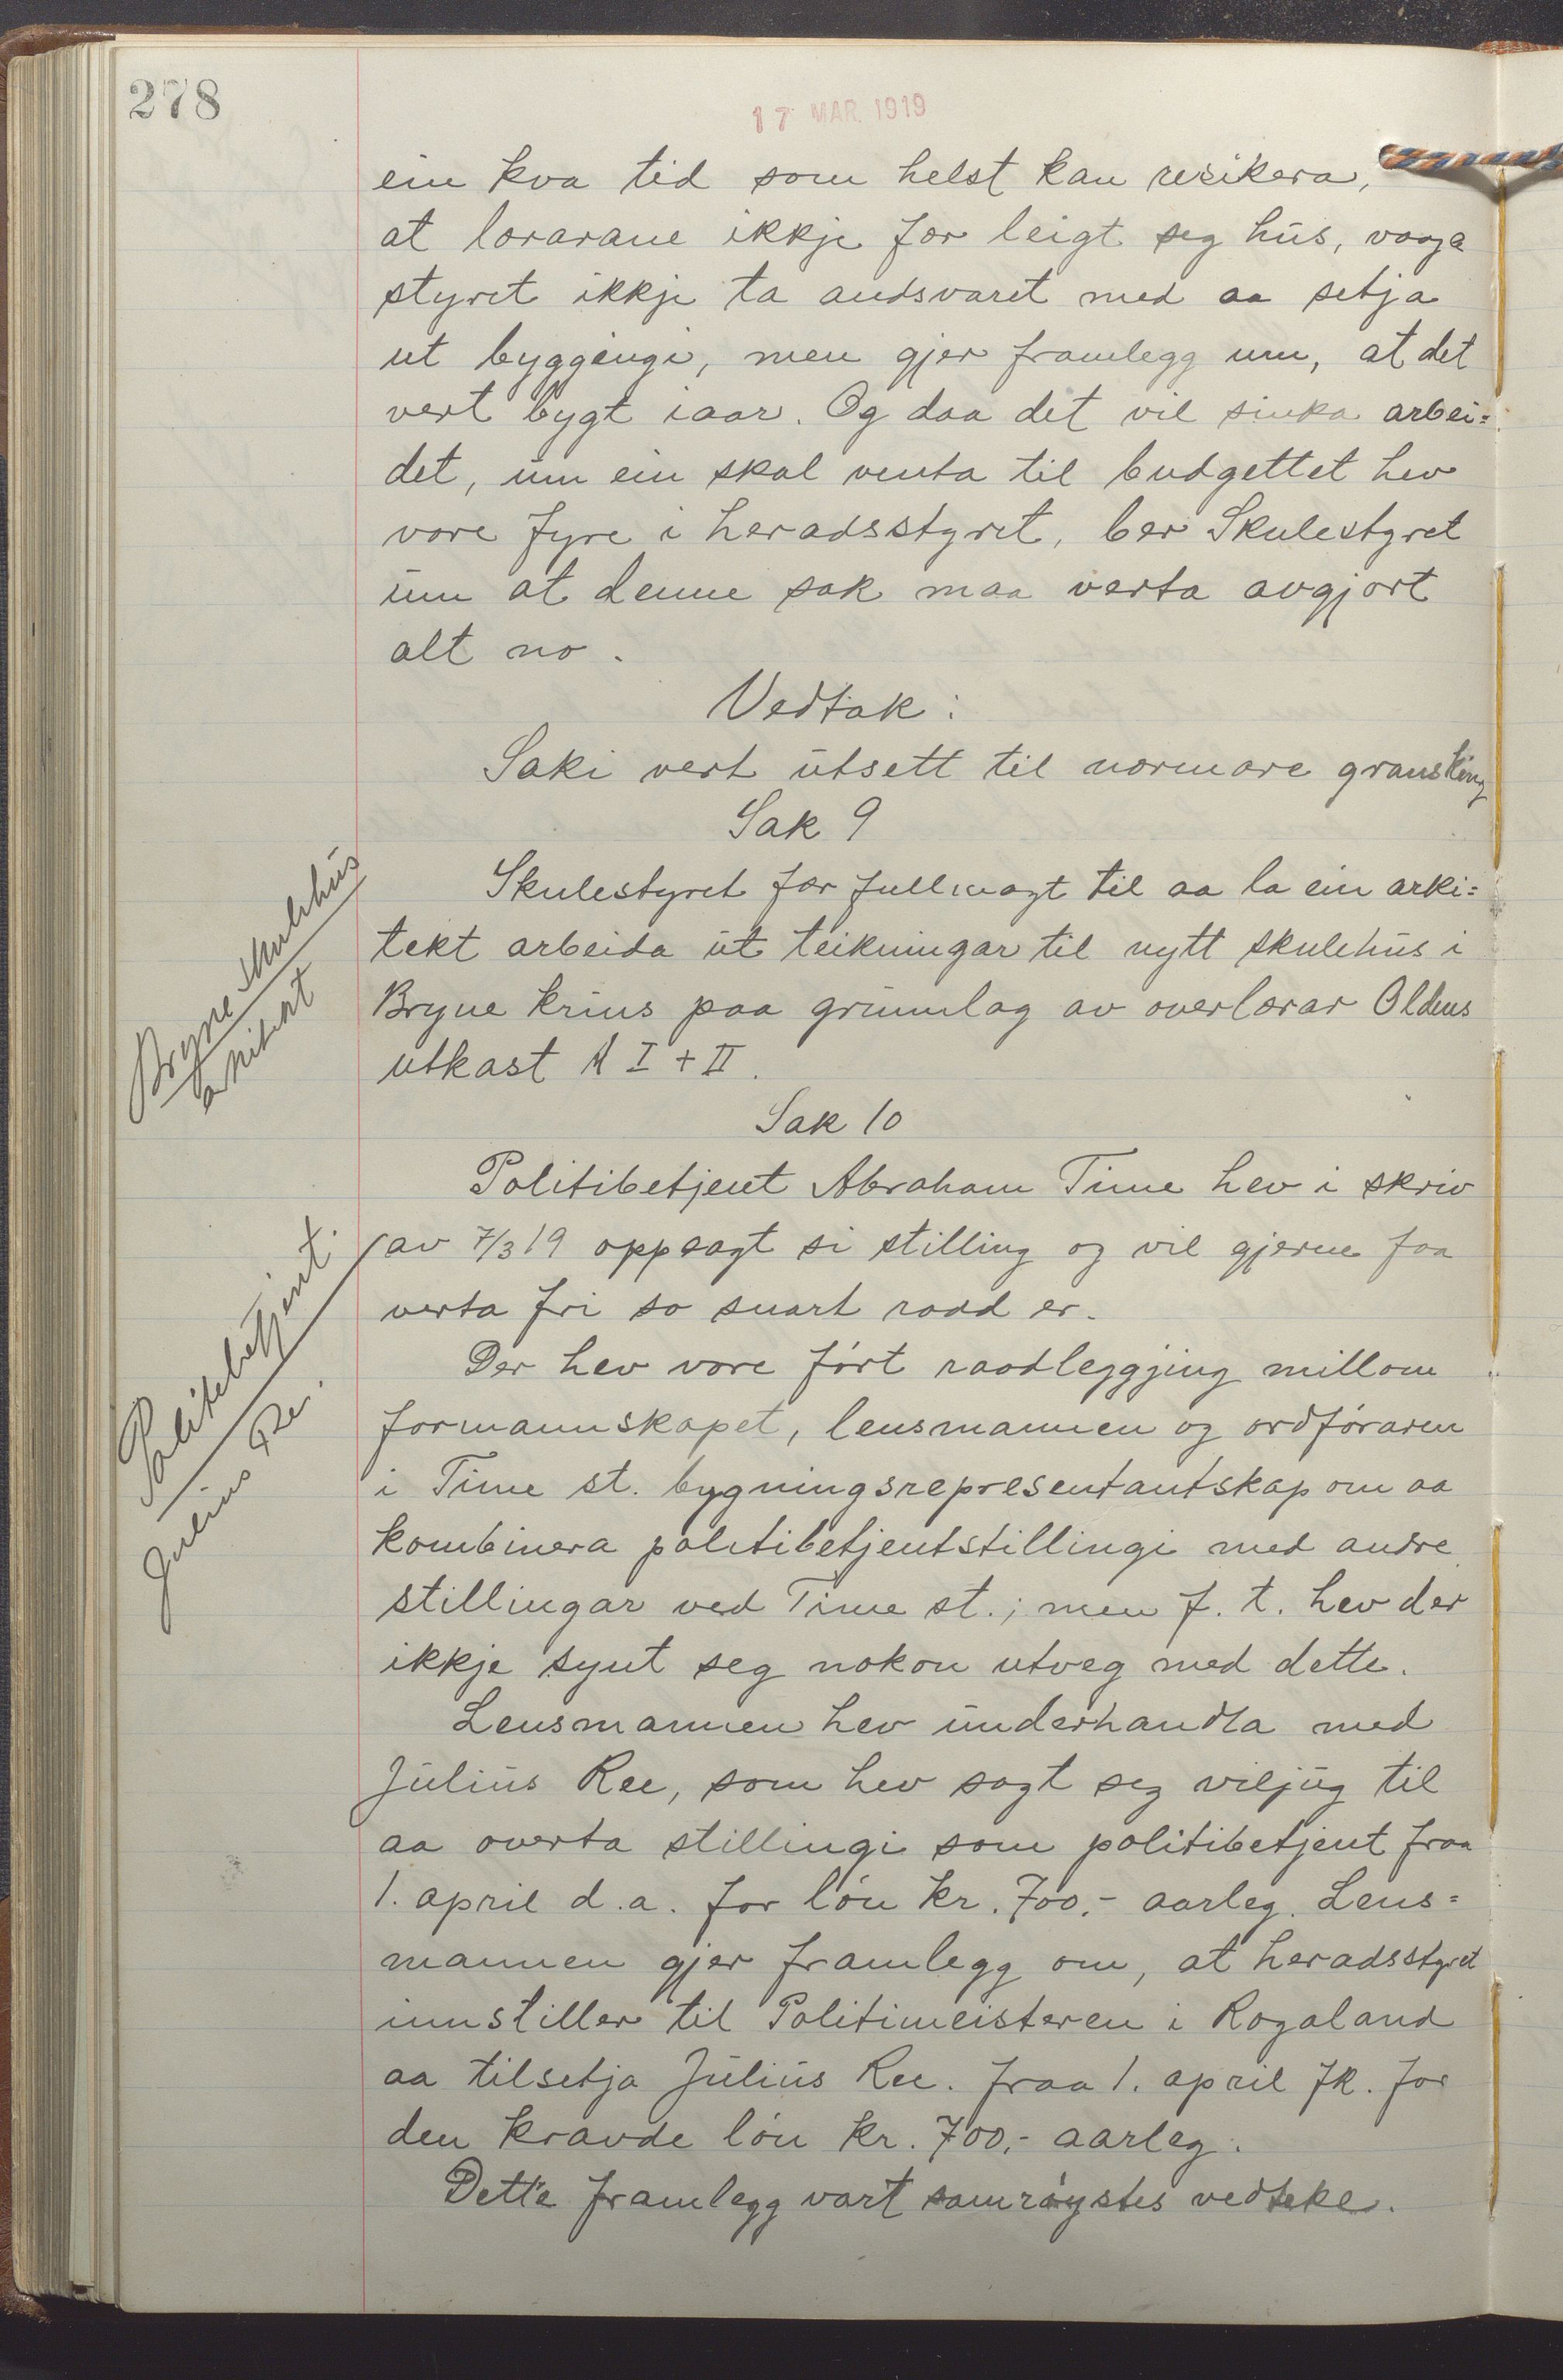 278
17 MAR. 1919
ein kva tid som helst kan resikera,
at lærarane ikkje fær leigt seg hus, vaaga
styret ikkje ta andsvaret med aa setja
ut byggingi, men gjer framlegg um, at det
vert bygt iaar. Og daa det vil sinka arbei=
det, um ein skal venta til budgettet hev
vore fyre i heradsstyret, ber Skulestyret
um at denne sak maa verta avgjort
alt no.
Vedtak:
Saki vert utsett til nærmare gransking
Sak 9
Bryne skulehus
arkitekt
Skulestyret fær fullmagt til aa la ein arki=
tekt arbeida ut teikningar til nytt skulehus i
Bryne krins paa grunnlag av overlærar Oldens
utkast A I + II.
Sak 10
Politibetjent.
Julius Ree.
Politibetjent Abraham Time hev i skriv
av 7/3 19 oppsagt si stilling og vil gjerne faa
verta fri so snart raad er.
Der hev vore ført raadleggjing millom
formannskapet, lensmannen og ordføraren
i Time st. bygningsrepresentantskap om aa
kombinera politibetjentstillingi med andre
stillingar ved Time st.; men f. t. hev der
ikkje synt seg nokon utveg med dette.
Lensmannen hev underhandla med
Julius Ree, som hev sagt seg viljug til
aa overta stillingi som politibetjent fraa
1. april d.a. for løn kr. 700,- aarleg. Lens=
mannen gjer framlegg om, at heradsstyret
innstiller til Politimeisteren i Rogaland
aa tilsetja Julius Ree. fraa 1. april fk. for
den kravde løn kr. 700,- aarleg.
Dette framlegg vart samrøystes vedteke.